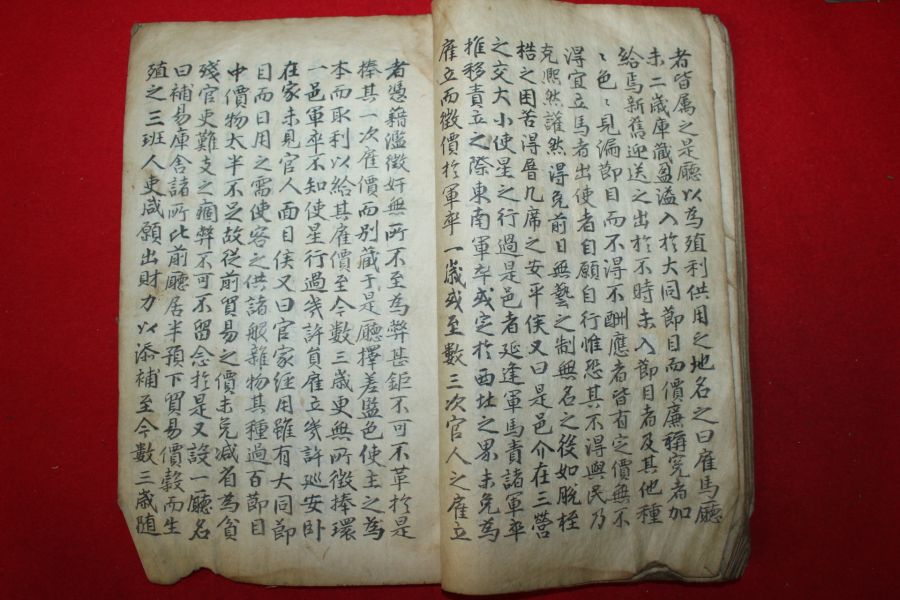 者皆属之是廳以為殖利供用之地名之曰雇馬廳
未二歲庫藏盈溢入於大同節目而價廉稱寃者加
給馬新舊迎送之出於不時未入節目者及其他種
〻色〻見漏節目而不得不酬應者皆有定價無不
得宜立馬者出使者自願自行惟恐其不得與民乃
克熈然讙然得免前日無藝之制無名之後如脫桎
梏之困苦得晷几席之安平侯又曰是邑介在三營
之交大小使星之行過是邑者延逢軍馬責諸軍卒
推移責立之際東南軍卒或定於西北之果未免為
雇立而徵價於軍卒一歲或至數三次官人之雇立
者憑藉濫徵奸無所不至為弊甚鉅不可不革於是
捧其一次雇價而別藏于是廳擇差監色使主之為
本而取利以給其雇價至今數三歲更無所徵捧環
一邑軍卒不知使星行過幾許負雇立幾許延安卧
在家未見官人面目侯又曰官家経用雖有大同節
目而日用之需使客之供諸般雜物其種過百節目
中價物太半不足故從前貿易之價未免减省為貧
殘官吏難支之痼弊不可不留念於是又設一廳名
曰補易庫舍諸所比前廳居半預下貿易價穀而生
殖之三班人吏咸願出財力以添補至今數三歲随